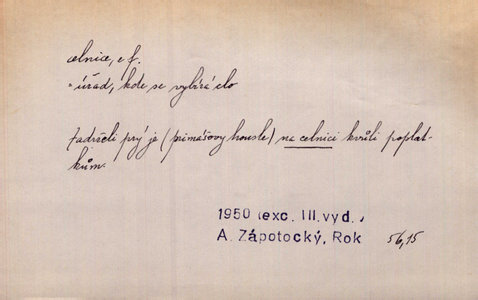 celnice, e f.
= úřad, kde se vybírá clo
Zadrželi prý je (primášovy housle) na celnici kvůli poplat-
kům.
1950 (exc. III. vyd.)
A. Zápotocký, Rok
56,15